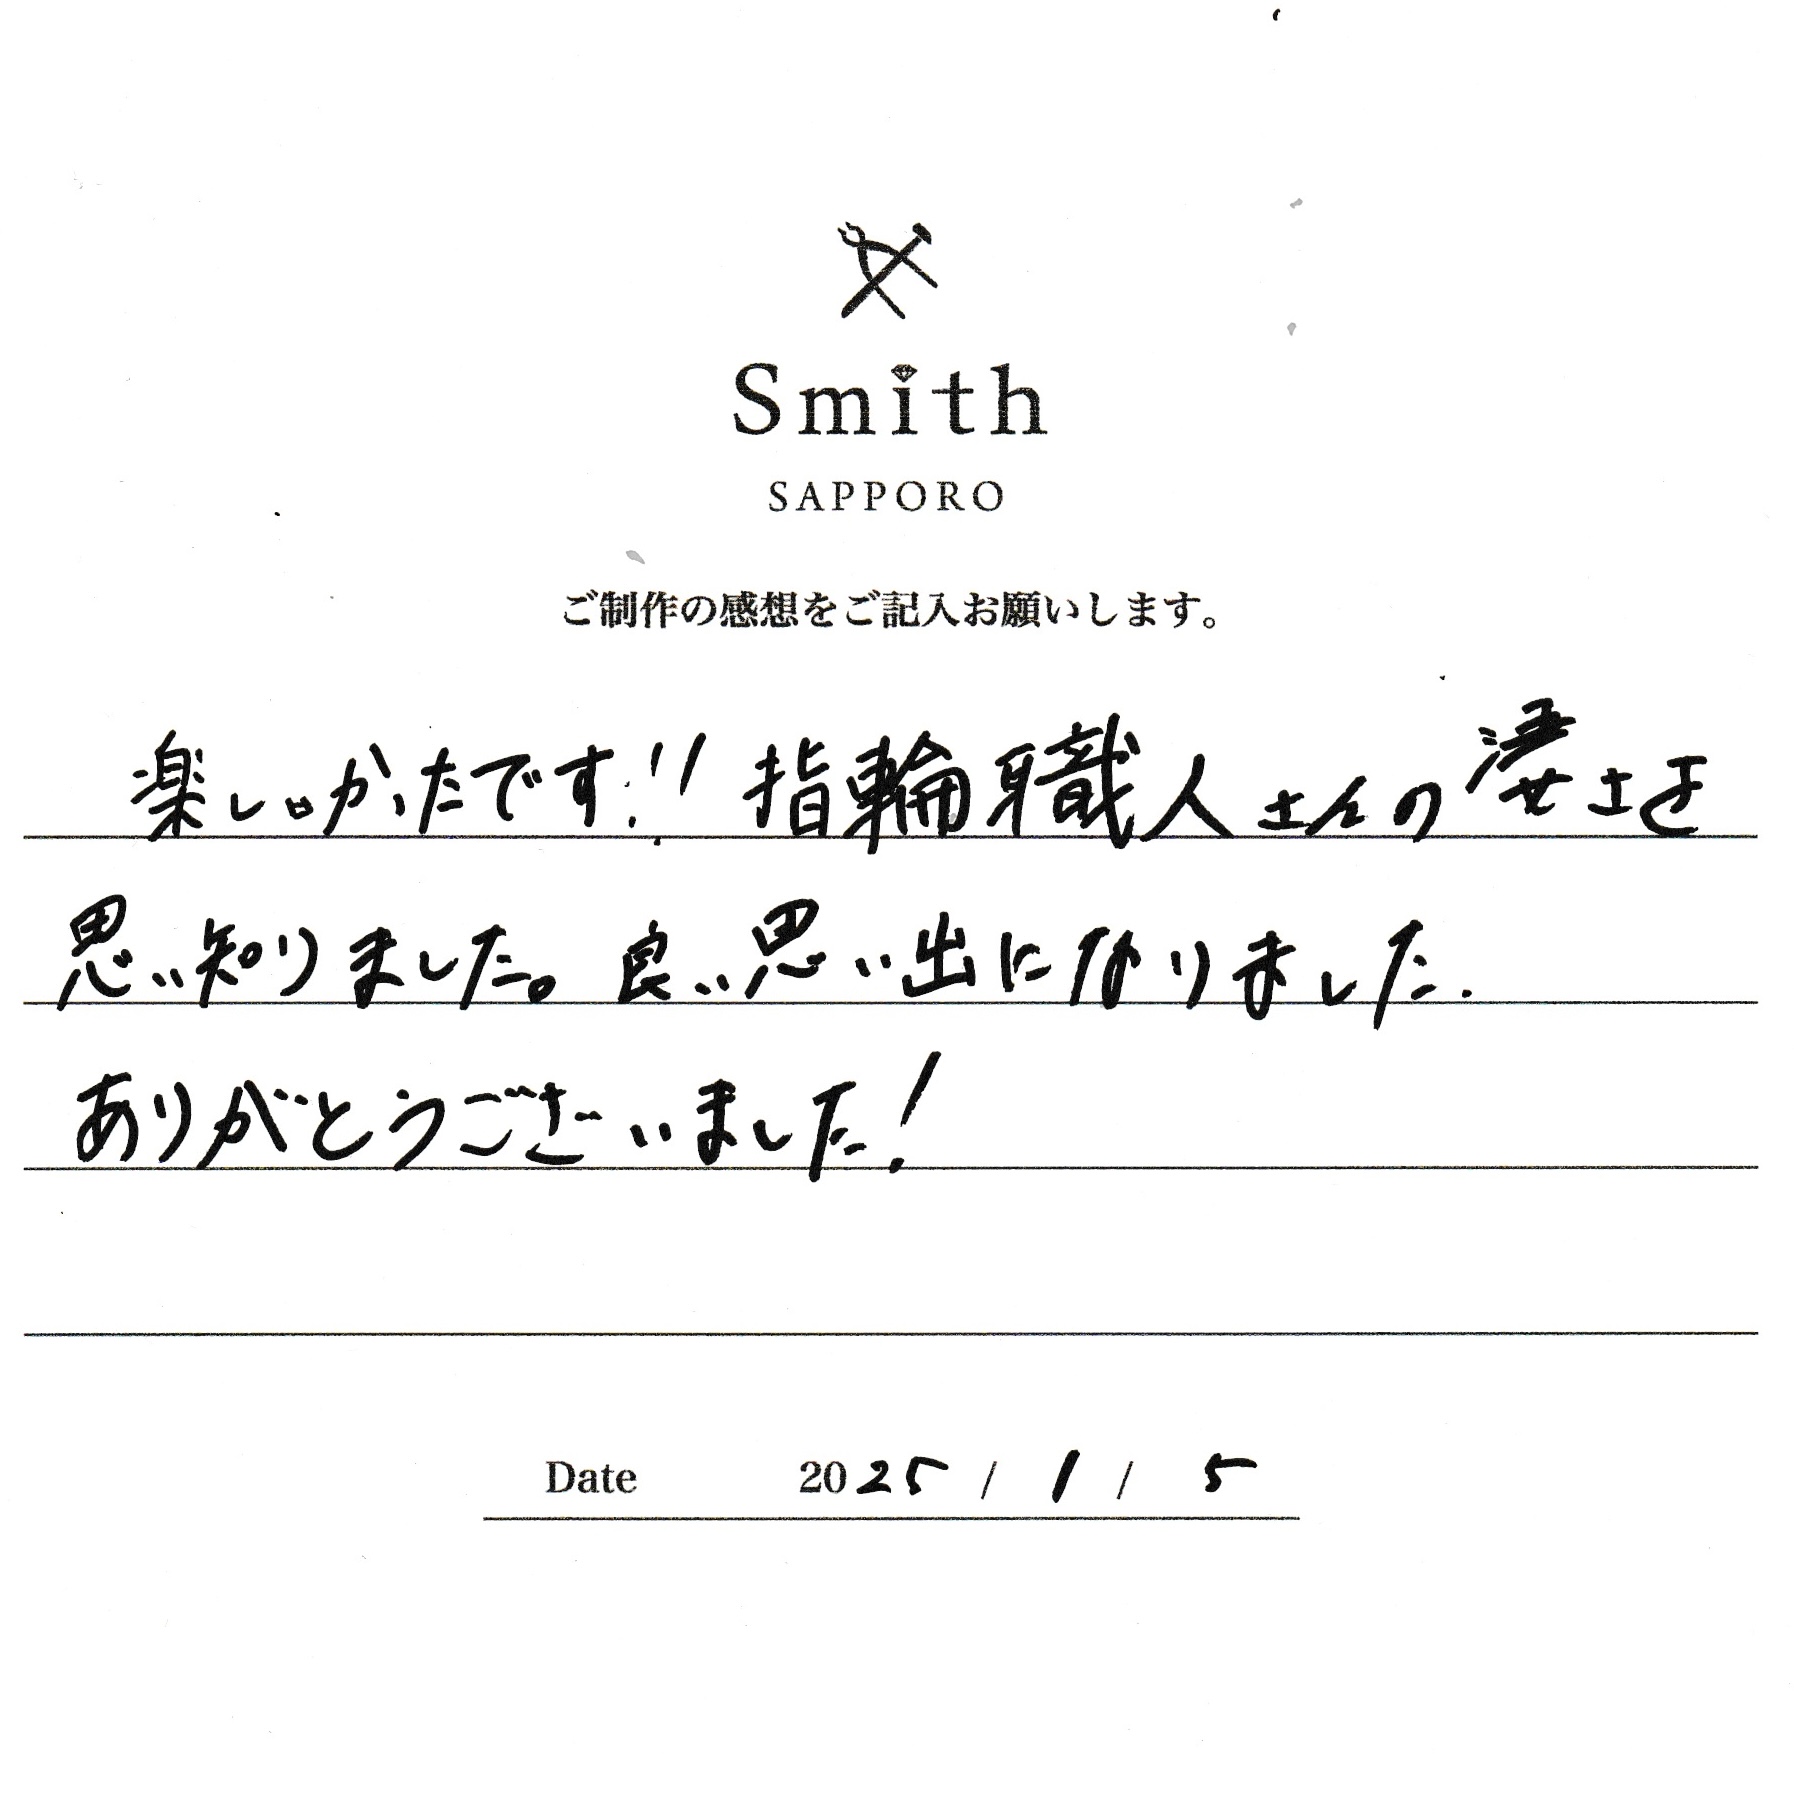 Smith
SAPPORO
ご制作の感想をご記入お願いします。
楽しかったです!! 指輪職人さんの凄さを
思い知りました。良い思い出になりました.
ありがとうございました!
Date 2025 / 1 / 5